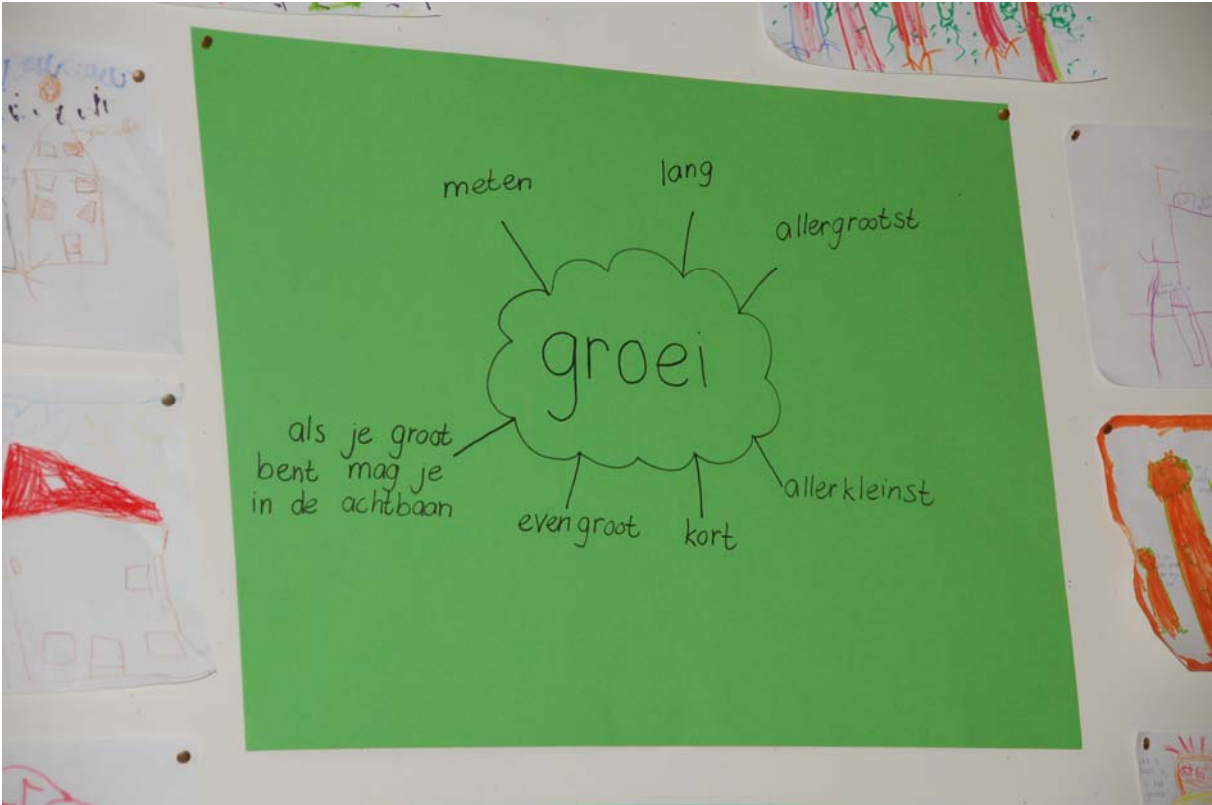 meten
lang
allergrootst
groei
als je groot
bent mag je
in de achtbaan
even groot
kort
allerkleinst